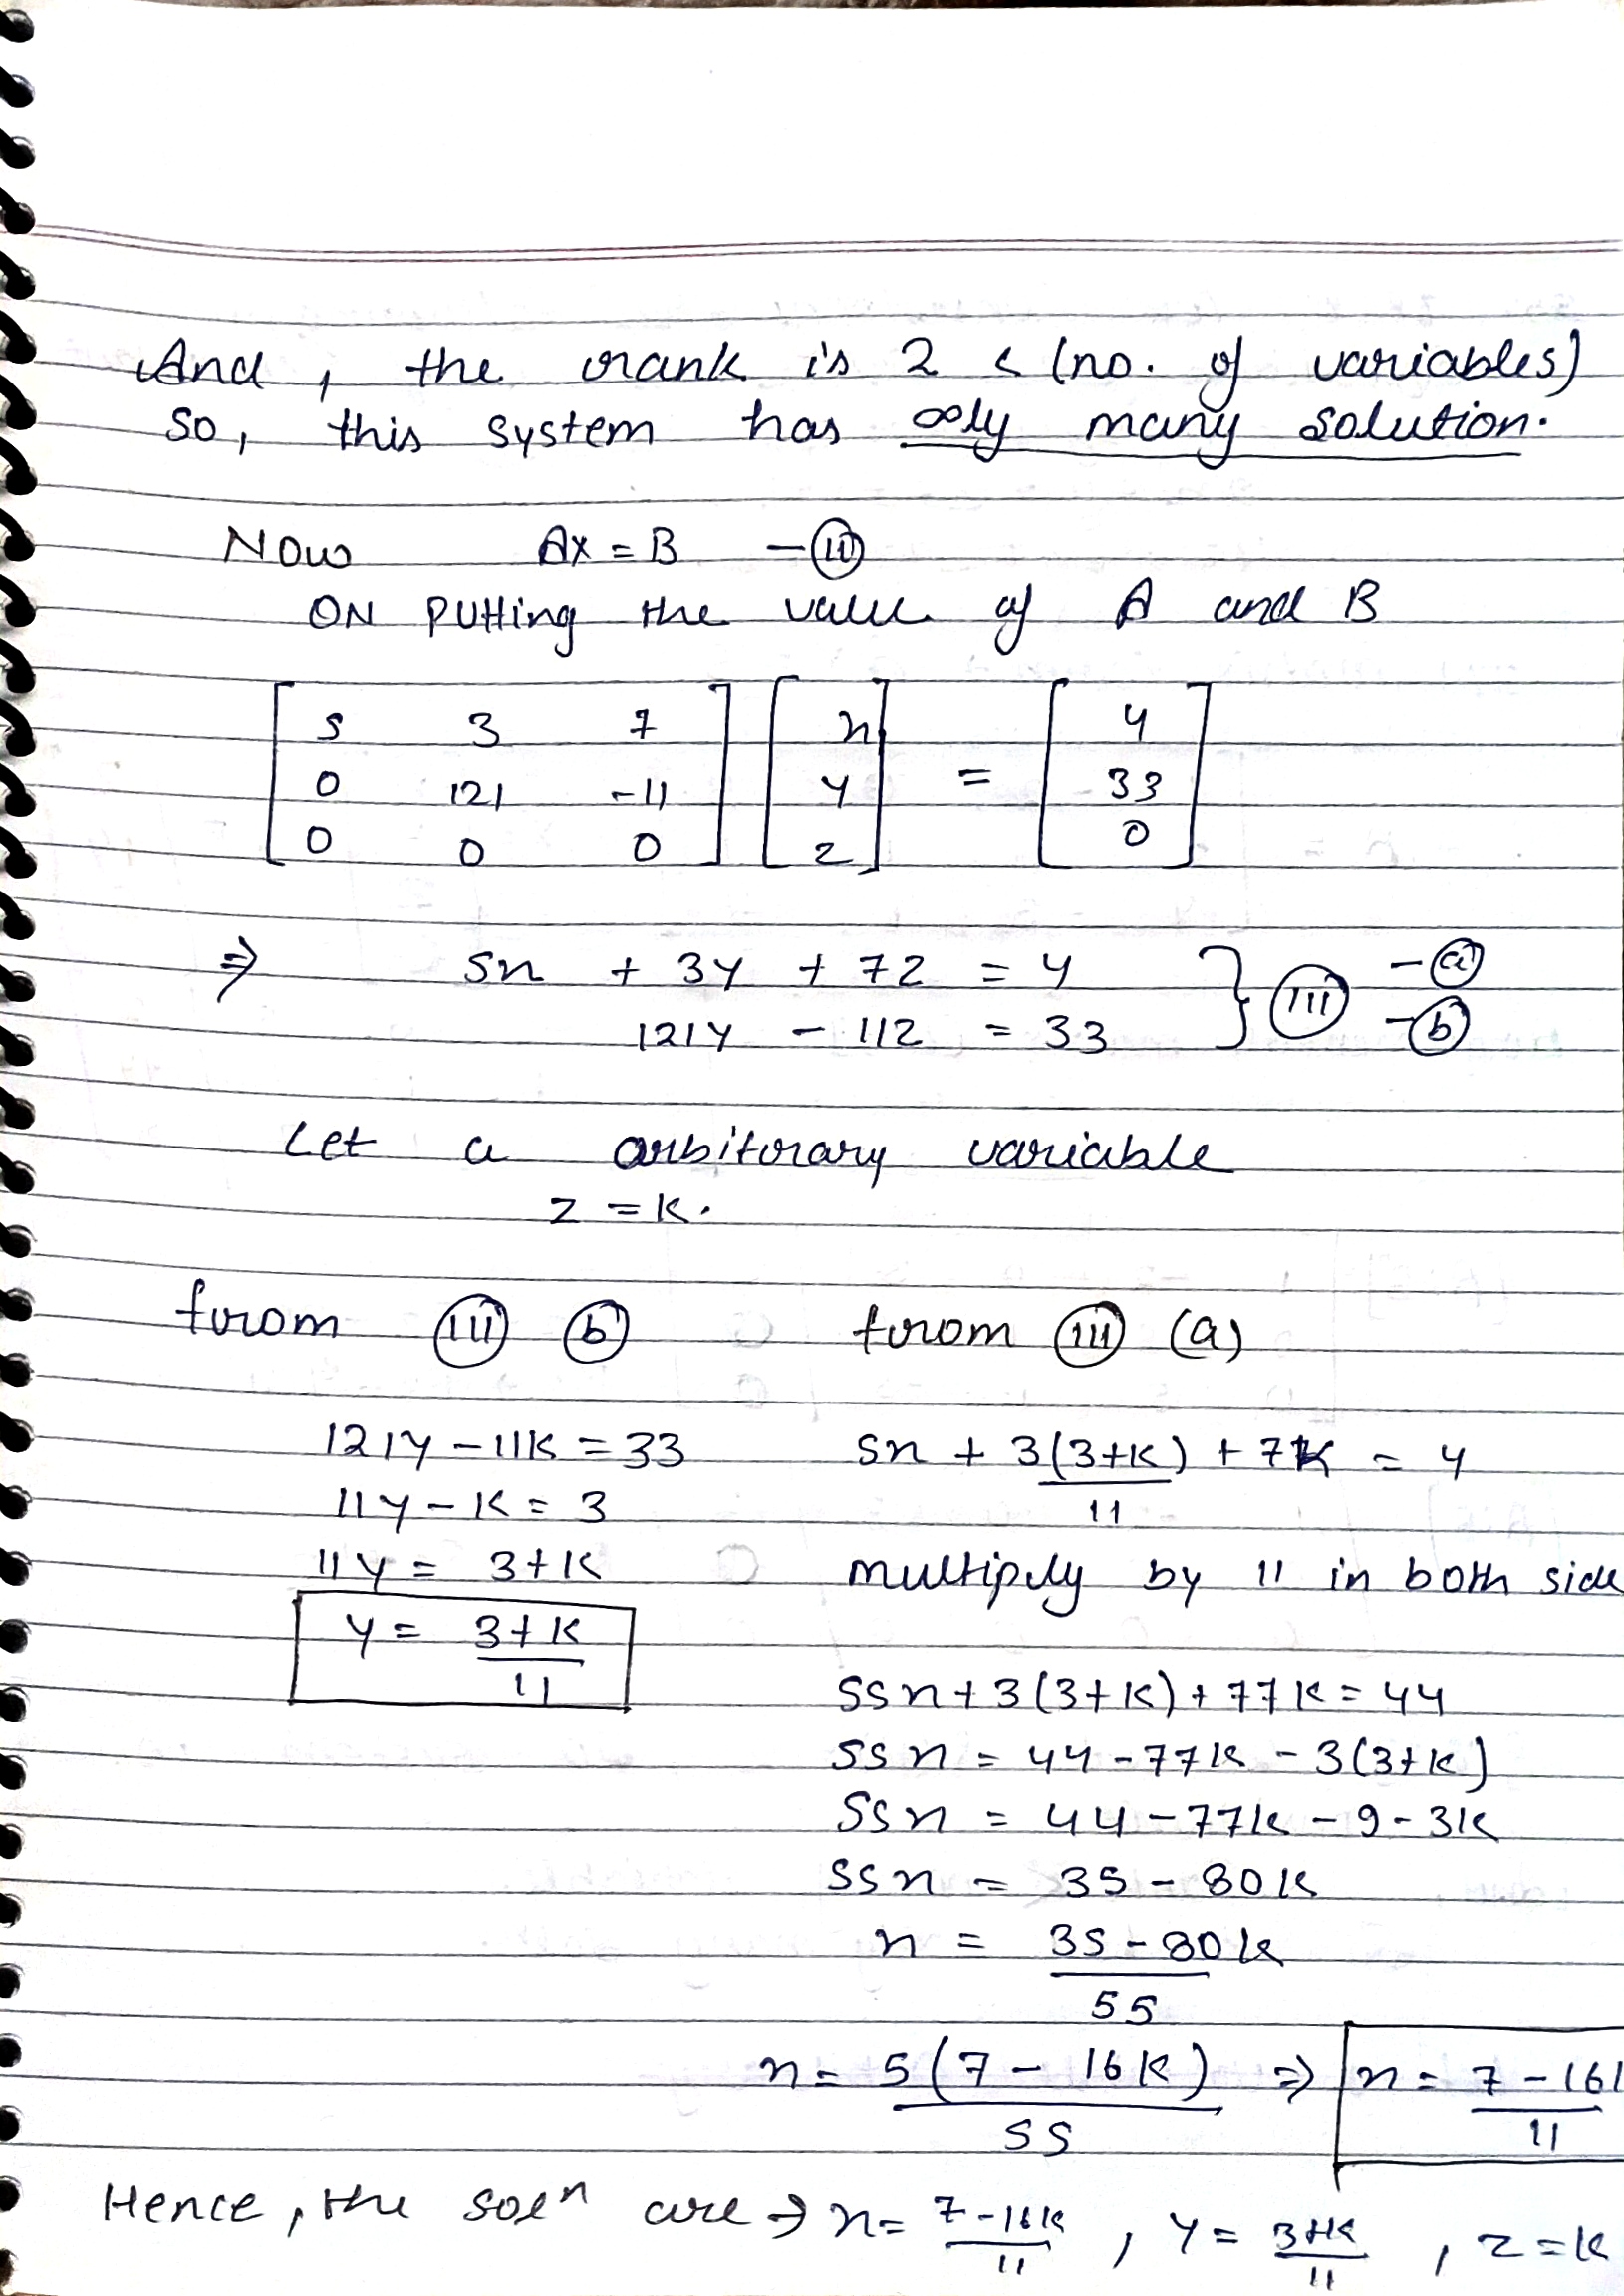 And, the rank is 2 < (no. of variables)
so, this system has ∞ly many solution.
Now AX = B - (ii)
ON PUTTing the value of A and B
[ 5 3 7 ] [ x ] = [ 4 ]
[ 0 121 -11 ] [ y ] = [ 33 ]
[ 0 0 0 ] [ z ] = [ 0 ]
⇒ 5x + 3y + 7z = 4 } (iii) - (a)
121y - 11z = 33 - (b)
Let a arbitrary variable
z = k.
from (iii) (b)
121y - 11k = 33
11y - k = 3
11y = 3+k
y = (3+k)/11
from (iii) (a)
5x + 3(3+k)/11 + 7k = 4
multiply by 11 in both side
55x + 3(3+k) + 77k = 44
55x = 44 - 77k - 3(3+k)
55x = 44 - 77k - 9 - 3k
55x = 35 - 80k
x = (35 - 80k)/55
x = 5(7 - 16k)/55 ⇒ x = (7 - 16k)/11
Hence, the solⁿ are → x = (7-16k)/11 , y = (3+k)/11 , z = k